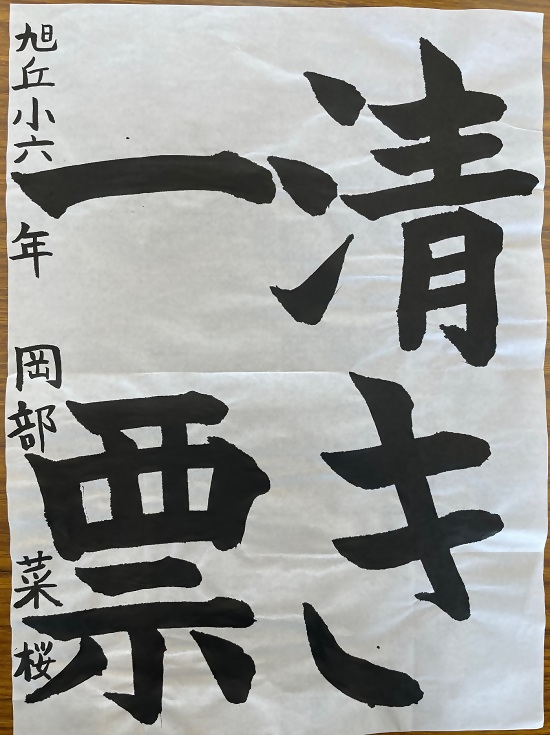 清き
一票
旭丘小六年 岡部菜桜